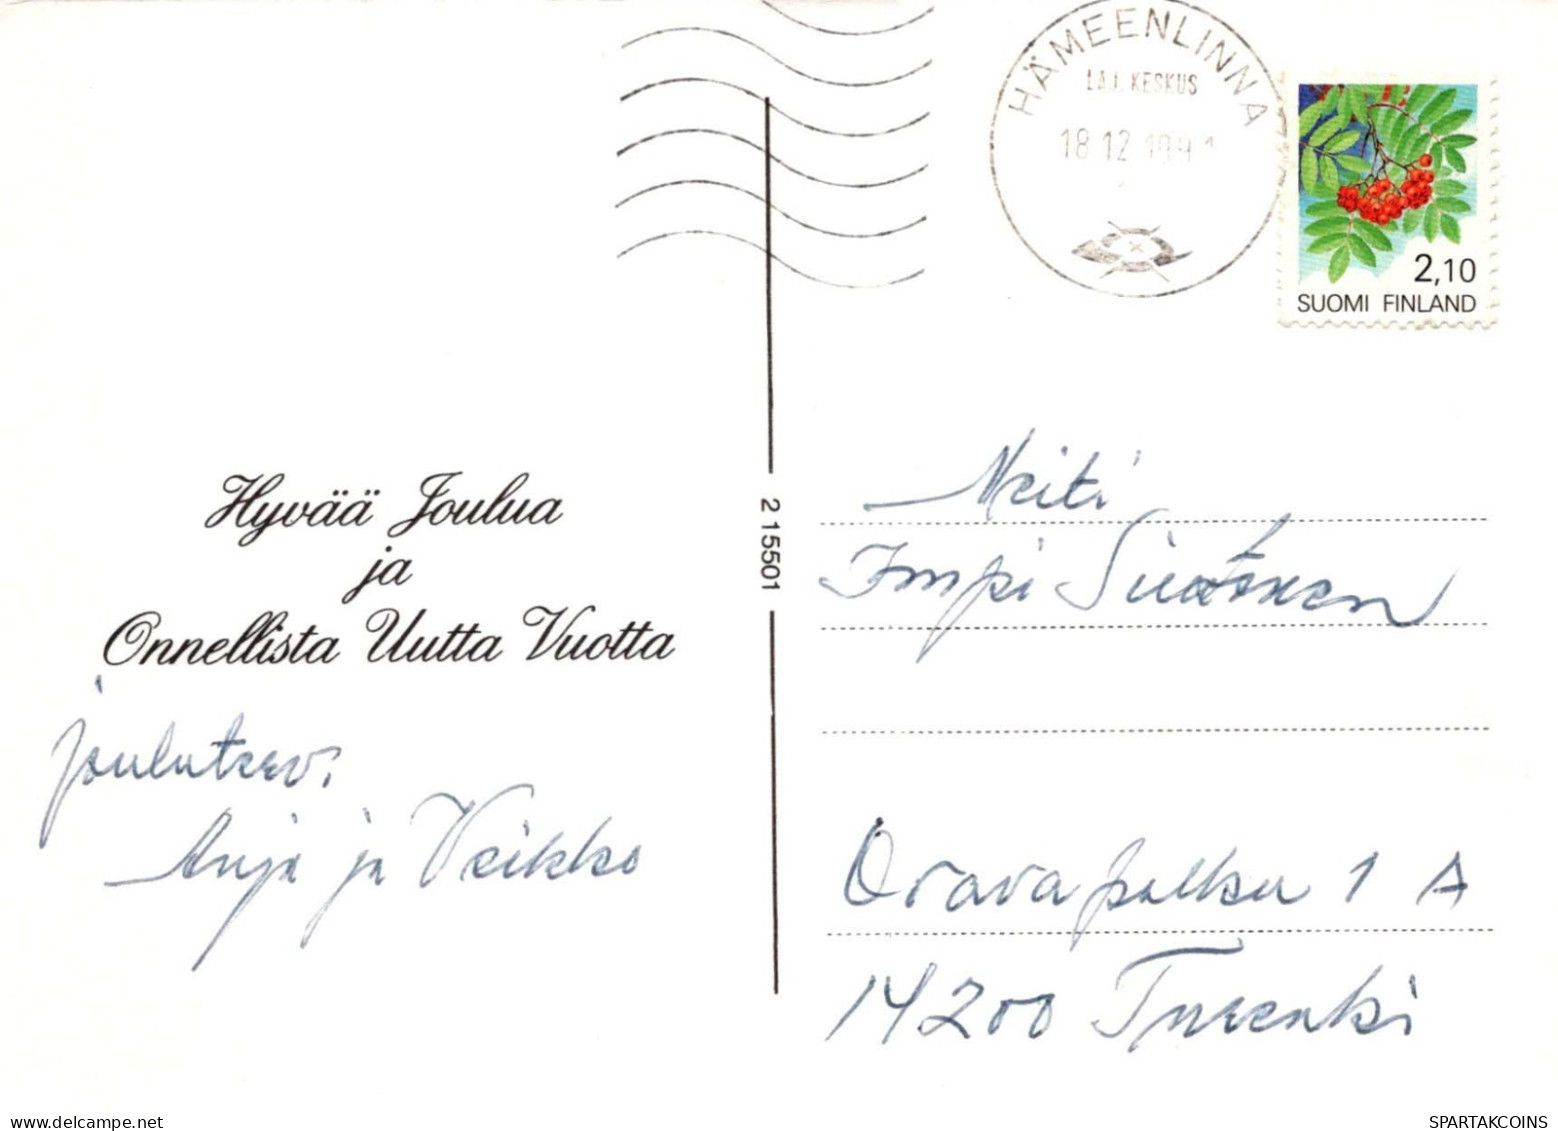 HÄMEENLINNA
LAJ. KESKUS
18 12 199
2,10
SUOMI FINLAND
Hyvää Joulua
ja
Onnellista Uutta Vuotta
jouluterv.
Anja ja Veikko
2 15501
Neiti
Impi
Oravapolku 1 A
14200 Turenki
www.delcampe.net
SPARTAKCOINS